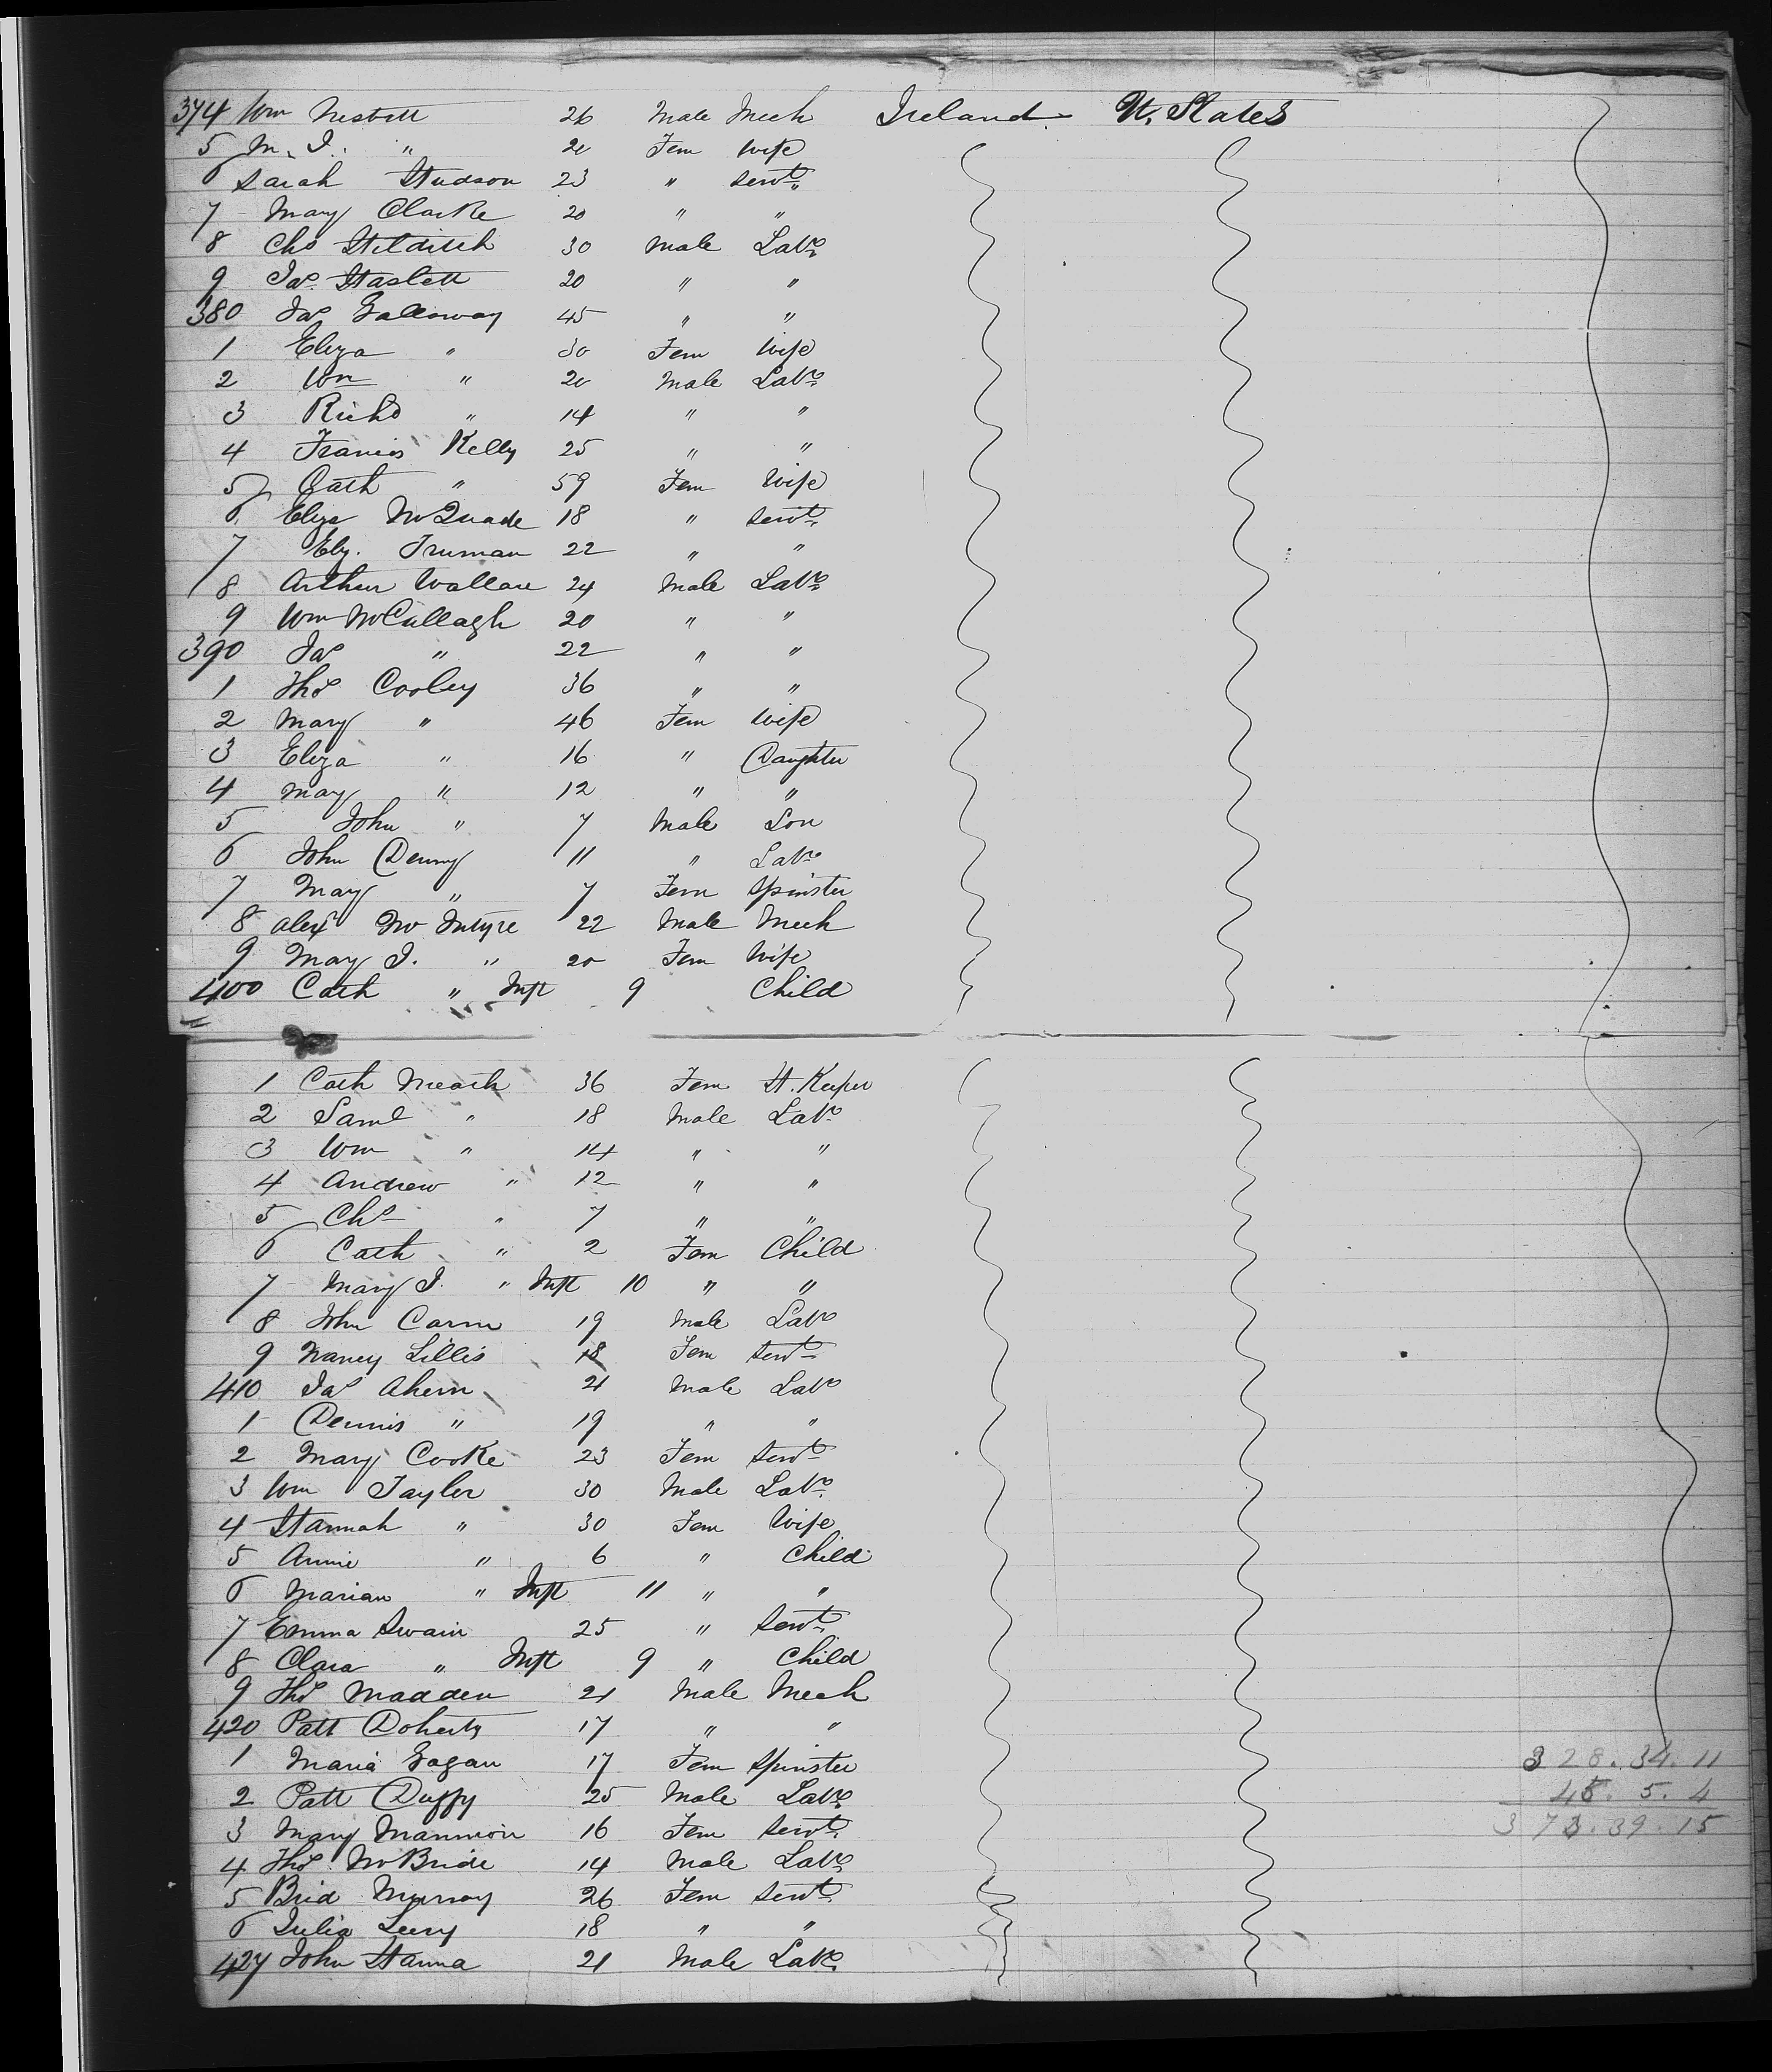 374 Wm Nesbitt 26 Male Mech Ireland U. States
5 M. J. " 20 Fem Wife
6 Sarah Hudson 23 " Servt
7 Mary Clarke 20 " "
8 Chs Hilditch 30 Male Labr
9 Jas Haslett 20 " "
380 Jas Galloway 45 " "
1 Eliza " 30 Fem Wife
2 Wm " 20 Male Labr
3 Richd " 14 " "
4 Francis Kelly 25 " "
5 Cath " 59 Fem Wife
6 Eliza McQuade 18 " Servt
7 Elz. Truman 22 " "
8 Arthur Wallace 24 Male Labr
9 Wm McCullagh 20 " "
390 Jas " 22 " "
1 Thos Cooley 36 " "
2 Mary " 46 Fem Wife
3 Eliza " 16 " Daughter
4 Mary " 12 " "
5 John " 7 Male Son
6 John Denny 11 " Labr
7 Mary " 7 Fem Spinster
8 Alexr McIntyre 22 Male Mech
9 Mary J. " 20 Fem Wife
400 Cath " Inft 9 Child
1 Cath Meath 36 Fem H. Keeper
2 Saml " 18 Male Labr
3 Wm " 14 " "
4 Andrew " 12 " "
5 Chs " 7 " "
6 Cath " 2 Fem Child
7 Mary J. " Inft 10 " "
8 John Carne 19 Male Labr
9 Nancy Lillis 18 Fem Servt
410 Jas Ahern 21 Male Labr
1 Dennis " 19 " "
2 Mary Cooke 23 Fem Servt
3 Wm Tayler 30 Male Labr
4 Hannah " 30 Fem Wife
5 Annie " 6 " Child
6 Marian " Inft 11 " "
7 Emma Swain 25 " Servt
8 Clara " Inft 9 " Child
9 Thos Madden 21 Male Mech
420 Patt Doherty 17 " "
1 Maria Gagan 17 Fem Spinster 328. 34. 11
2 Patt Duffy 25 Male Labr 45. 5. 4
3 Mary Mannion 16 Fem Servt 373. 39. 15
4 Thos McBride 14 Male Labr
5 Brid Murray 26 Fem Servt
6 Julia Leery 18 " "
427 John Hanna 21 Male Labr